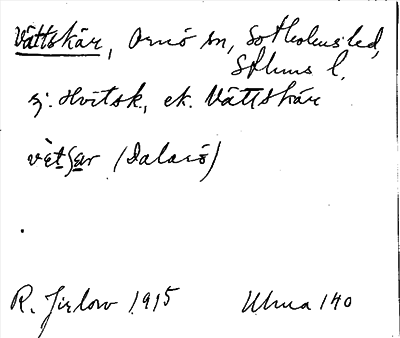 Vättskär, Ornö sn, Sotholms hd,
Sthms l.
ej: Hvitsk, ek. Vättskär
vètʃær (Dalarö)
R. Jirlow 1915 Ulma 140